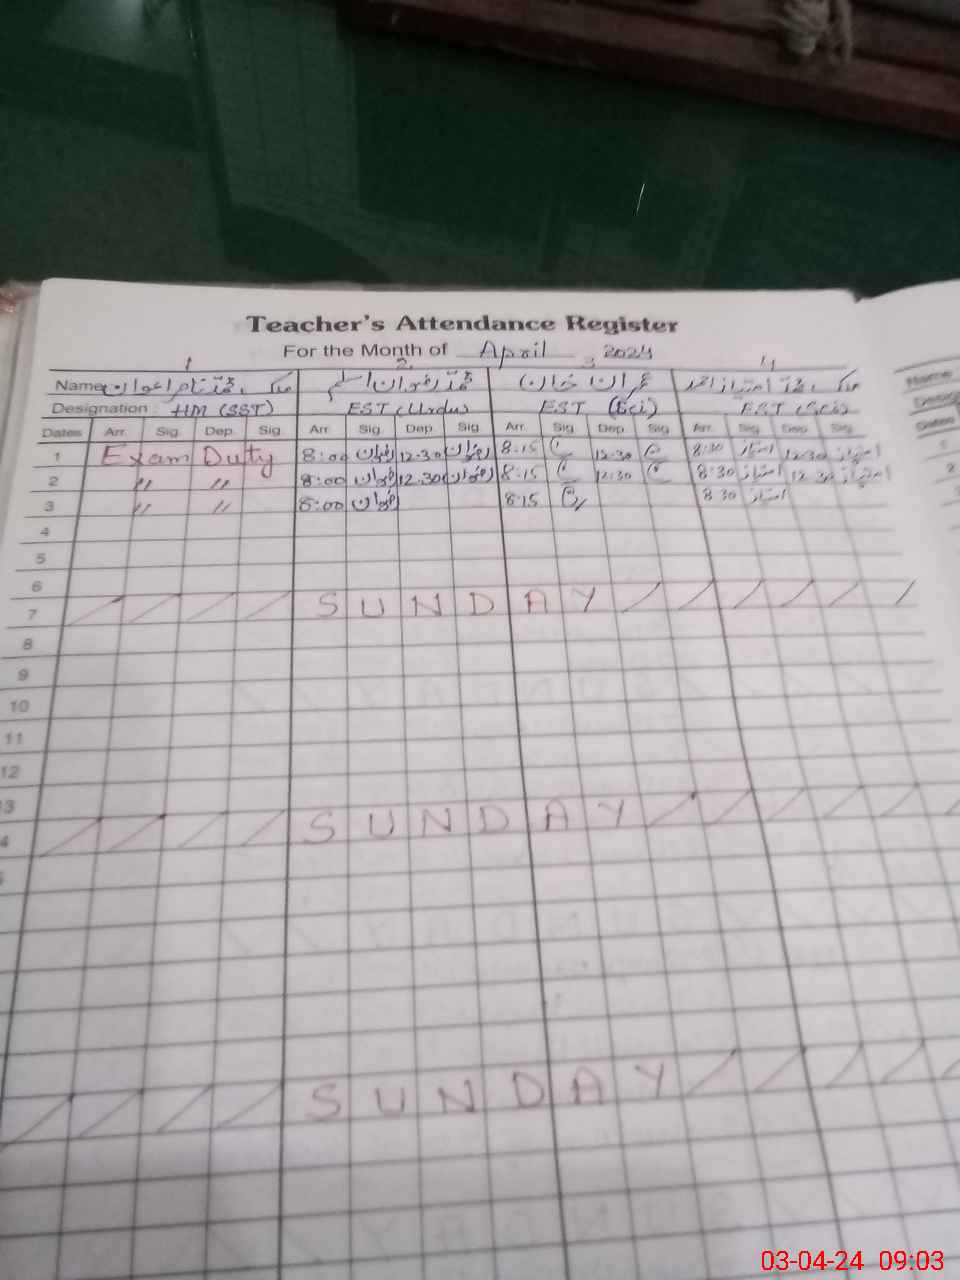 Teacher's Attendance Register
For the Month of April 2024
1 2 3 4
Name ملک محمد تنام اعوان محمد رضوان اسلم عمران خان ملک محمد امتیاز احمد Name
Designation : HM (SST) EST (Urdu) EST (Sci) EST (Sci)
Dates Arr. Sig. Dep. Sig. Arr. Sig. Dep. Sig. Arr. Sig. Dep. Sig. Arr. Sig. Dep. Sig. Dates
1 Exam Duty 8:00 رضوان 12:30 رضوان 8:15 12:30 8:30 امتیاز 12:30 امتیاز 1
2 " " 8:00 رضوان 12:30 رضوان 8:15 12:30 8:30 امتیاز 12:30 امتیاز
3 " " 8:00 رضوان 8:15 8:30 امتیاز
4
5
6
7 SUNDAY
8
9
10
11
12
3
4 SUNDAY
SUNDAY
03-04-24 09:03